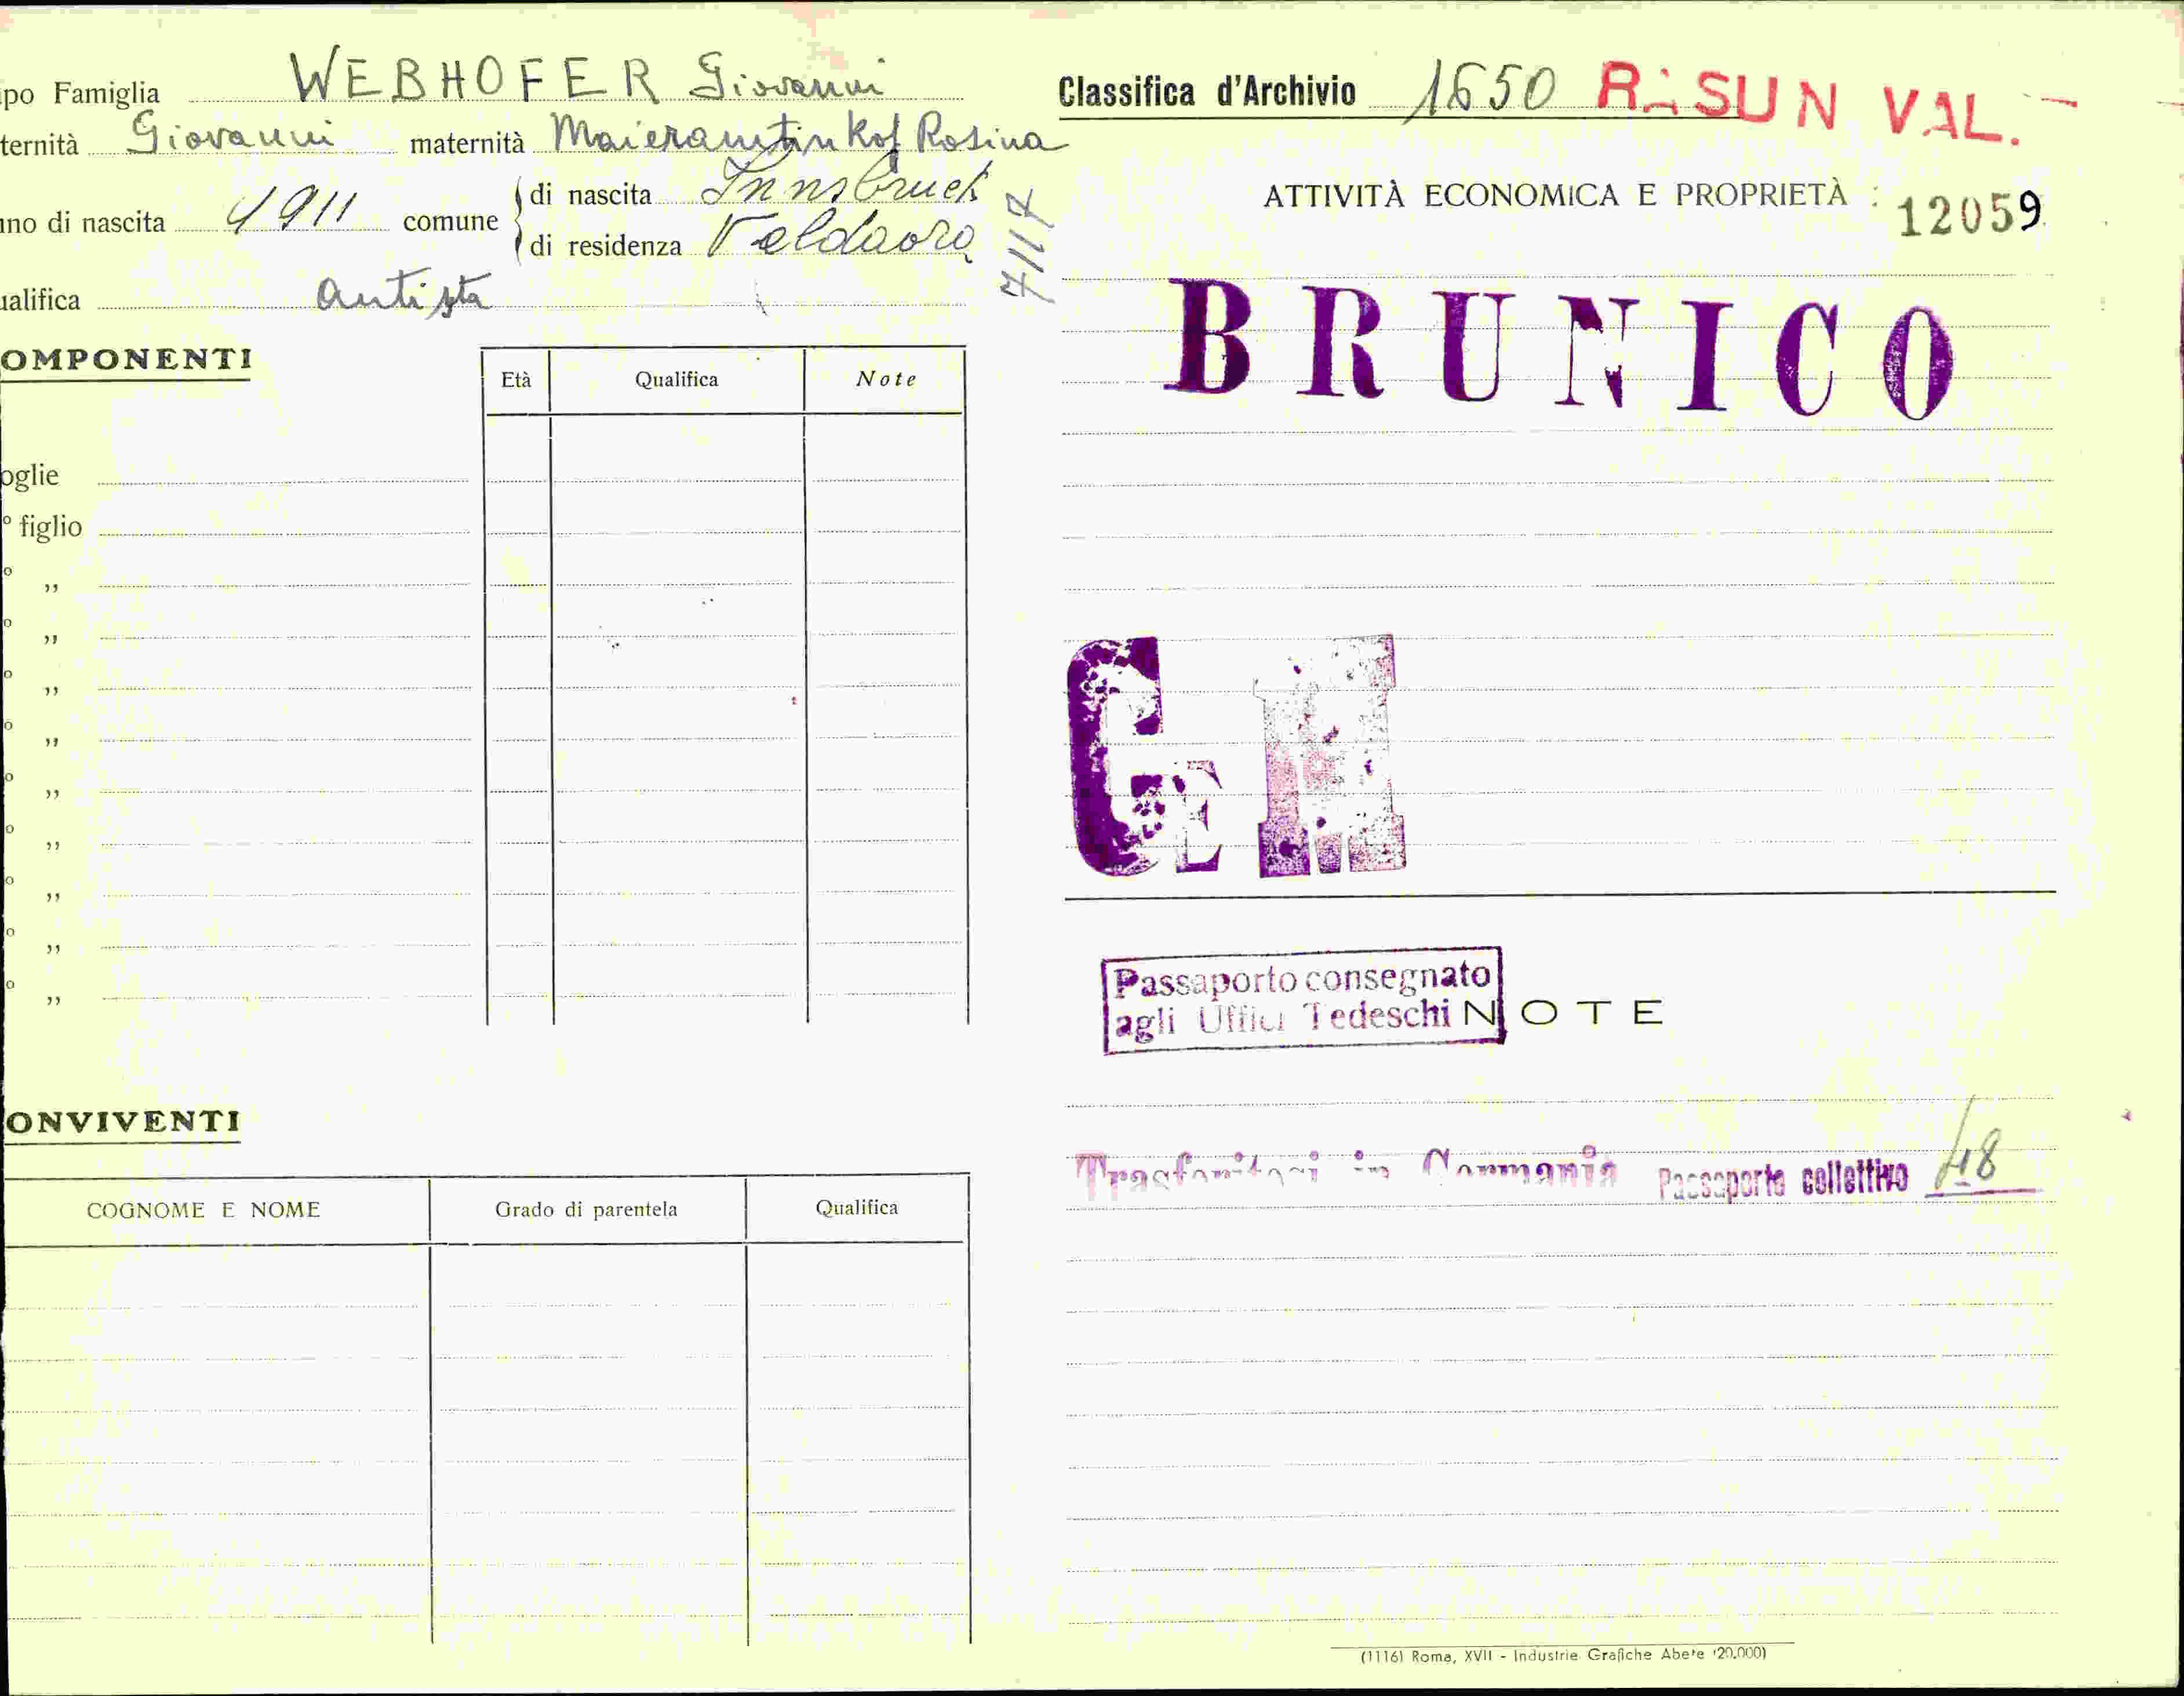 po Famiglia WEBHOFER Giovanni
ternità Giovanni maternità Maieramtinkof Rosina
no di nascita 1911 comune di nascita Innsbruck
di residenza Valdaora
alifica autista
7117
OMPONENTI
Età Qualifica Note
oglie
° figlio
° „
° „
° „
° „
° „
° „
° „
° „
° „
ONVIVENTI
COGNOME E NOME Grado di parentela Qualifica
Classifica d'Archivio 1650 RASUN VAL.
ATTIVITÀ ECONOMICA E PROPRIETÀ : 12059
BRUNICO
GE
Passaporto consegnato
agli Uffici Tedeschi
NOTE
Trasferitosi in Germania Passaporto collettivo 118
(1116) Roma, XVII - Industrie Grafiche Abete (20.000)